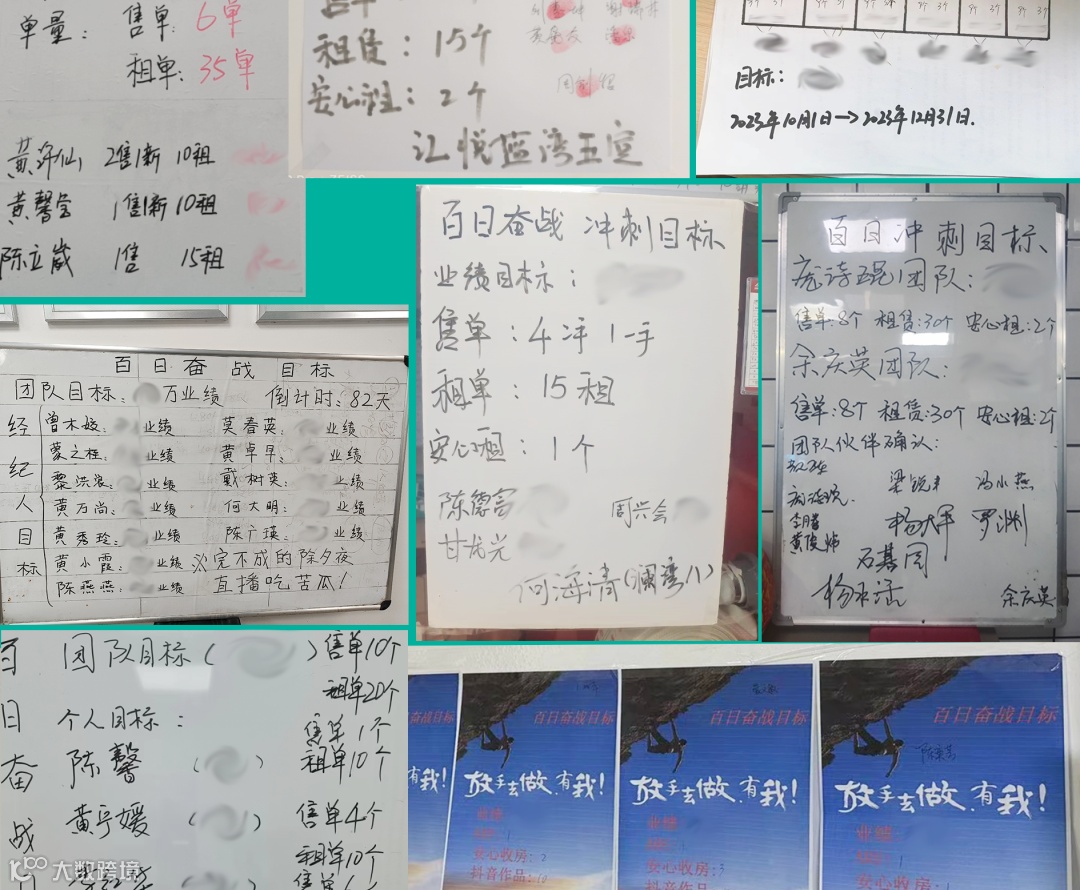 单量: 售单: 6单
租单: 35单
2售1新 10租
黄馨莹 1售1新 10租
陈立葳 1售 15租
租赁: 15个
安心租: 2个
汇悦蓝湾五室
目标:
2023年10月1日→2023年12月31日.
百日奋战 冲刺目标
业绩目标:
售单: 4二手 1一手
租单: 15租
安心租: 1个
周兴会
甘龙光
何海清(澜湾八)
百日冲刺目标
庞诗琨团队:
售单:8个 租赁:30个 安心租:2个
余庆英团队:
售单:8个 租赁:30个 安心租:2个
团队伙伴确认:
冯小燕
石基同
余庆英
百日奋战目标
团队目标: 万业绩 倒计时: 82天
经纪人目标
曾木姣: 业绩 莫春英: 业绩
蒙之桂: 业绩 黄卓早: 业绩
黎洪浪: 业绩 戴树英: 业绩
黄万尚: 业绩 何大明: 业绩
黄秀玲: 业绩 陈广瑛: 业绩
黄小霞: 业绩 完不成的除夕夜
陈燕燕: 业绩 直播吃苦瓜!
百日奋战
团队目标( )售单10个
租单20个
个人目标:
售单1个
陈馨 ( ) 租单10个
黄宇媛 ( ) 售单4个
租单10个
百日奋战目标
放手去做,有我!
业绩
安心收房: 2
抖音作品: 10
百日奋战目标
放手去做,有我!
业绩
安心收房: 3
抖音作品
百日奋战目标
放手去做,有我!
业绩
有我!
大数跨境